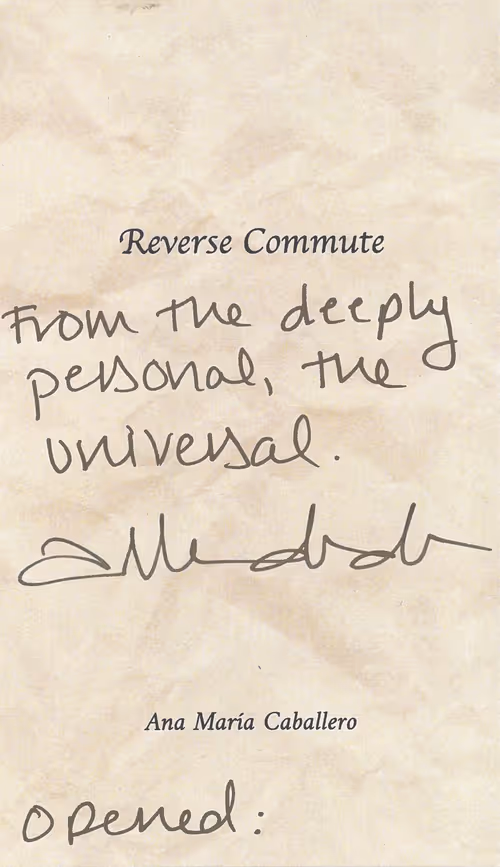 Reverse Commute
From the deeply
personal, the
universal.
Ana María Caballero
opened: